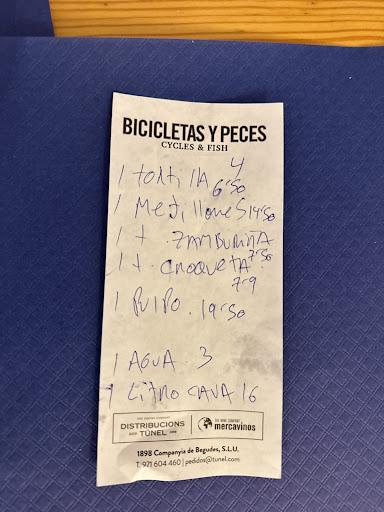 BICICLETAS Y PECES
CYCLES & FISH
4
1 tortilla 6'50
1 Mejillones 14'50
1 t. ZAMBURIÑA
7'50
1 t. CROQUETA
7-9
1 PULPO. 19'50
1 AGUA 3
1 LITRO CAVA 16
DISTRIBUCIONS
TÚNEL
THE WINE COMPANY
mercavinos
1898 Companyia de Begudes, S.L.U.
T. 971 604 460 | pedidos@tunel.com